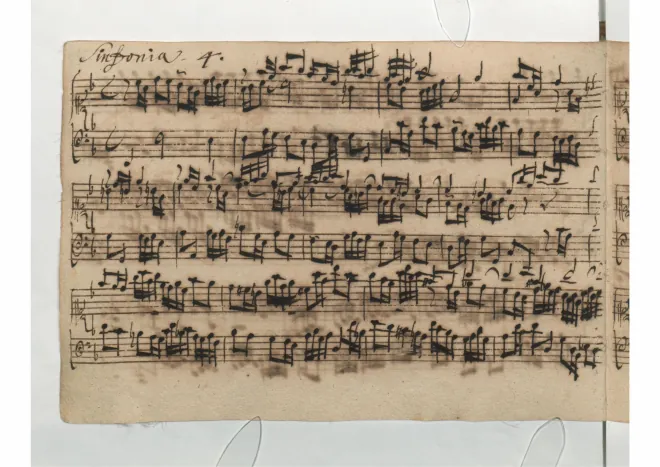 Sinfonia. 4.